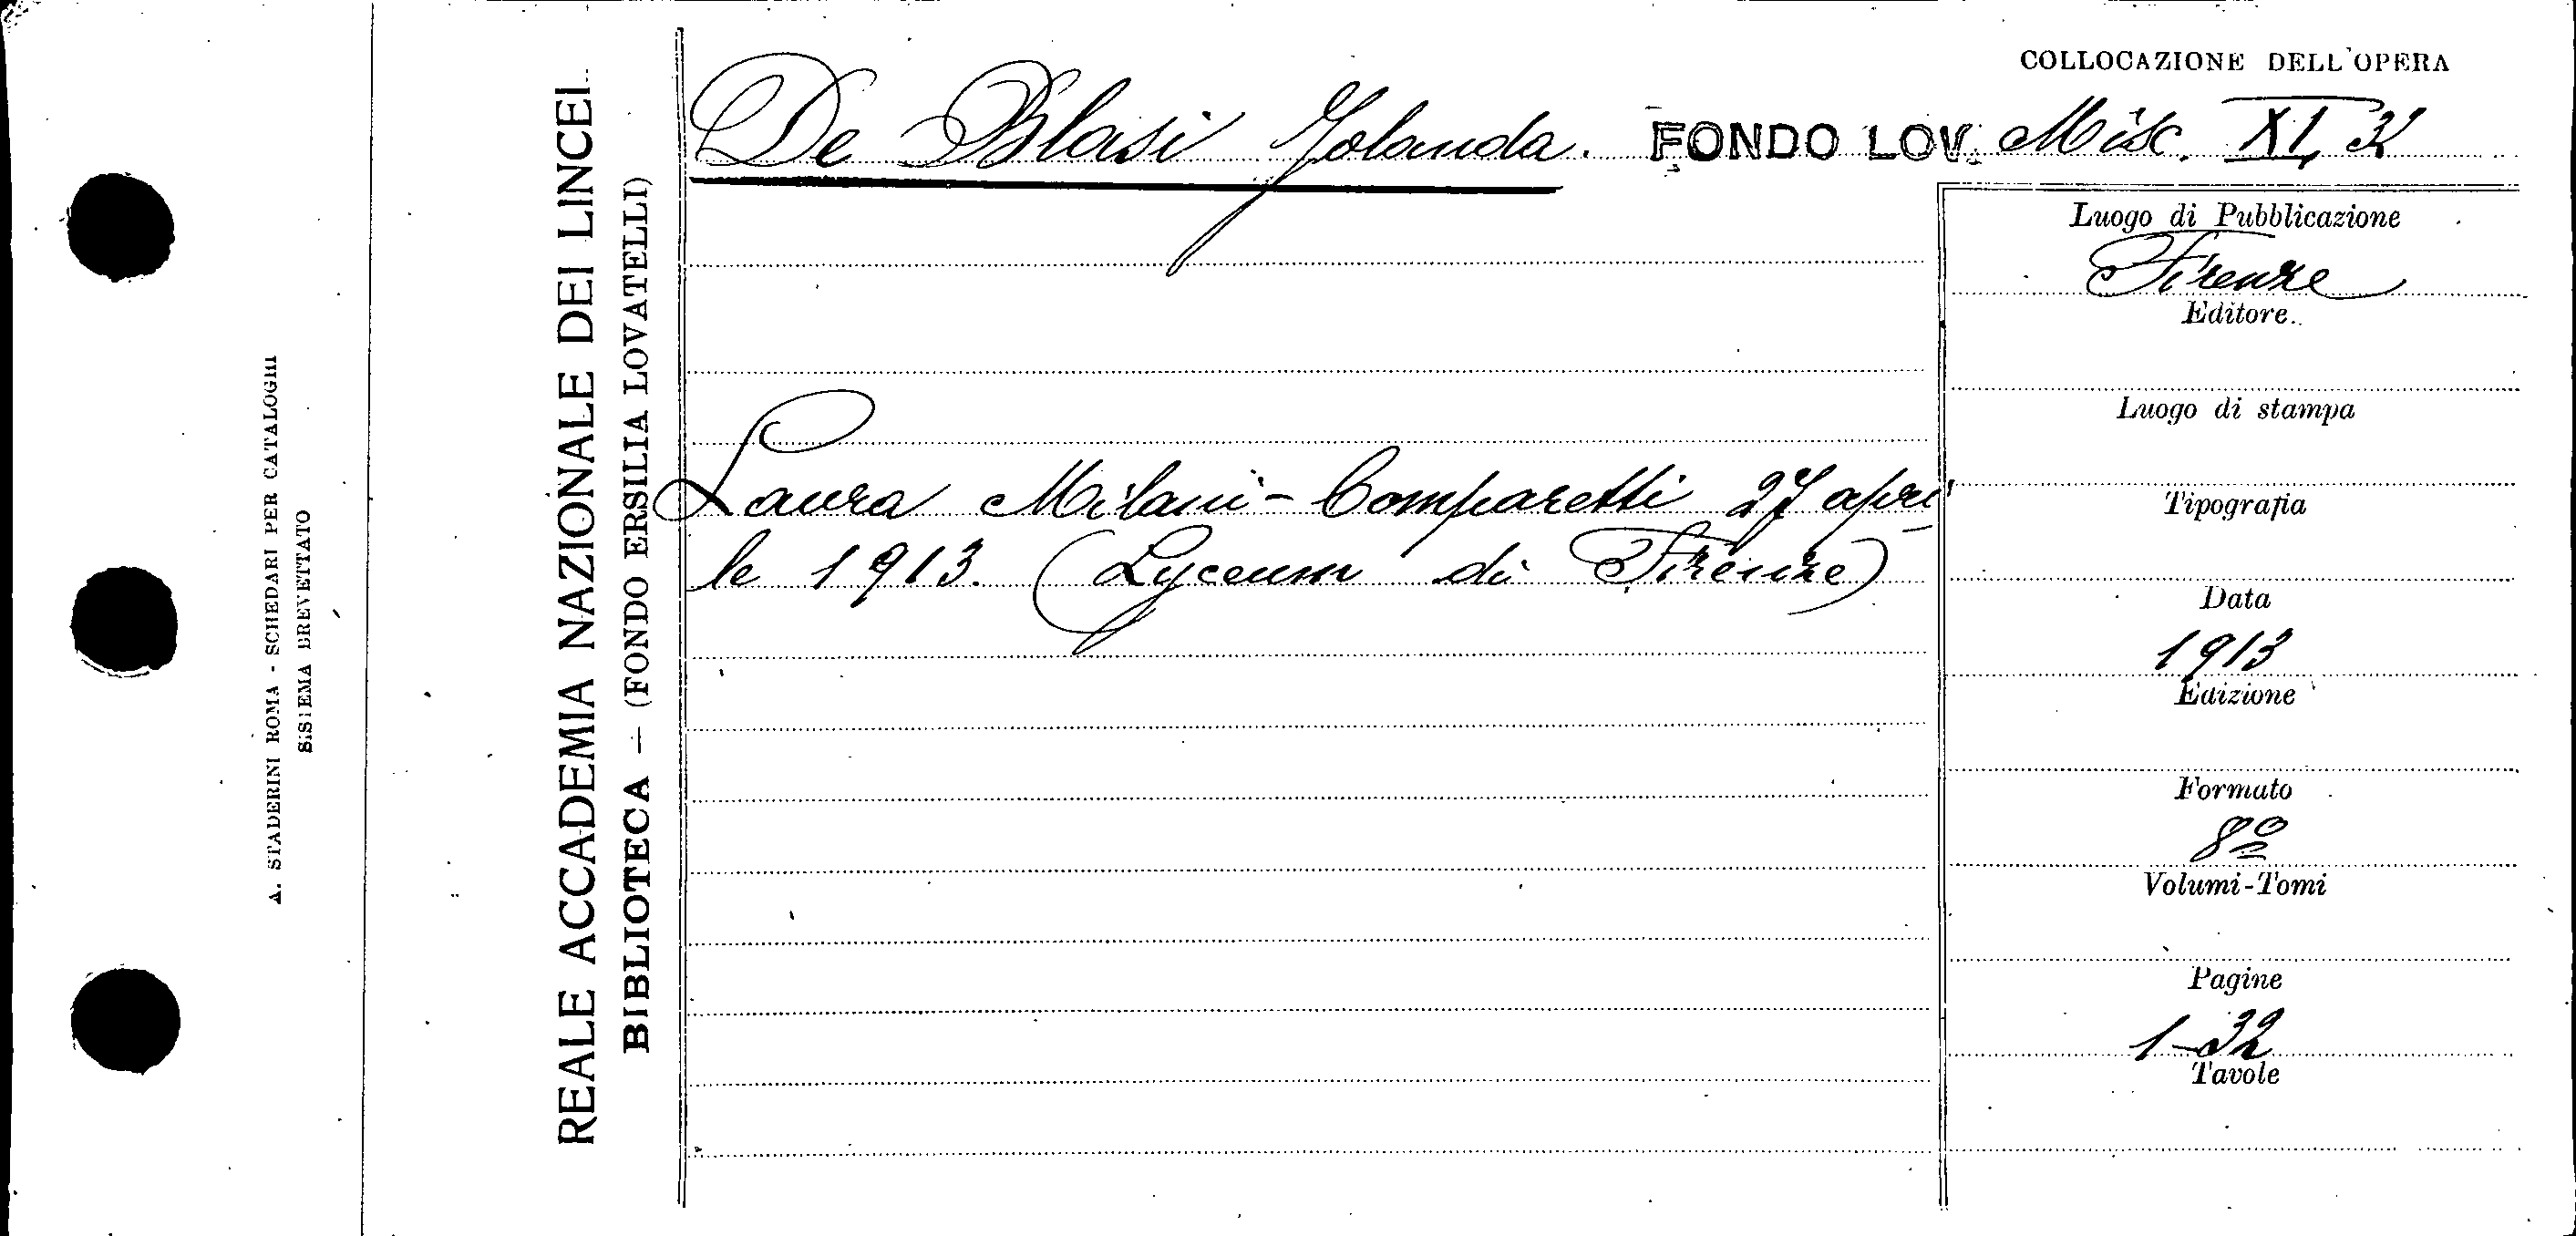 A. STADERINI ROMA - SCHEDARI PER CATALOGHI
SISTEMA BREVETTATO
REALE ACCADEMIA NAZIONALE DEI LINCEI
BIBLIOTECA — (FONDO ERSILIA LOVATELLI)
COLLOCAZIONE DELL'OPERA
De Blasi Jolanda. FONDO LOV. Misc. XI,
Laura Milani-Comparetti 27 apri
le 1913. (Lyceum di Firenze)
Luogo di Pubblicazione
Firenze
Editore
Luogo di stampa
Tipografia
Data
1913
Edizione
Formato
8º
Volumi-Tomi
Pagine
1-32
Tavole